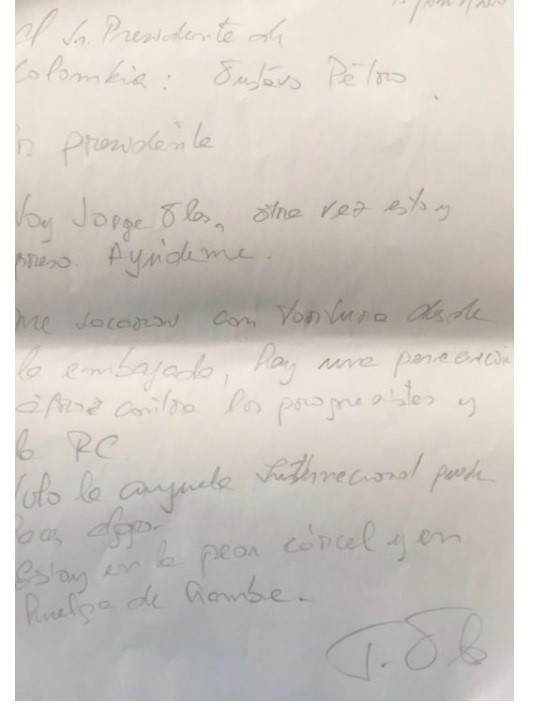 al Sr. Presidente de
Colombia: Gustavo Petro
Sr. presidente
Soy Jorge Glas, otra vez estoy
preso. Ayúdeme.
me sacaron con tortura desde
la embajada, hay una persecución
atroz contra los progresistas y
la RC
Solo la ayuda internacional puede
hacer algo.
Estoy en la peor cárcel y en
huelga de hambre.
J. Glas